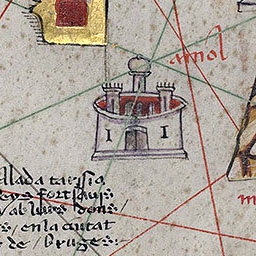 amol
m
llada tarssia
reys fort sauis
/ ab lurs dons /
s / en la ciutat
s de / Bruges :~